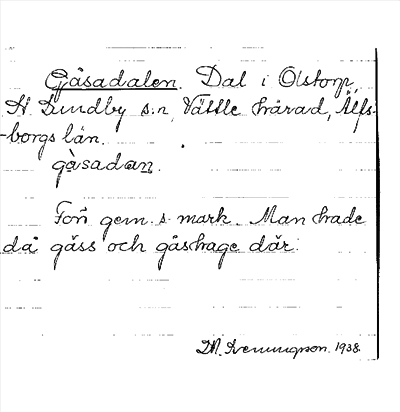 Gåsadalen. Dal i Olstorp,
St. Lundby s:n, Vättle härad, Älfs-
-borgs län.
gåsadan.
Förr gem. s. mark. Man hade
då gäss och gåshage där.
M. Svenungson. 1938.